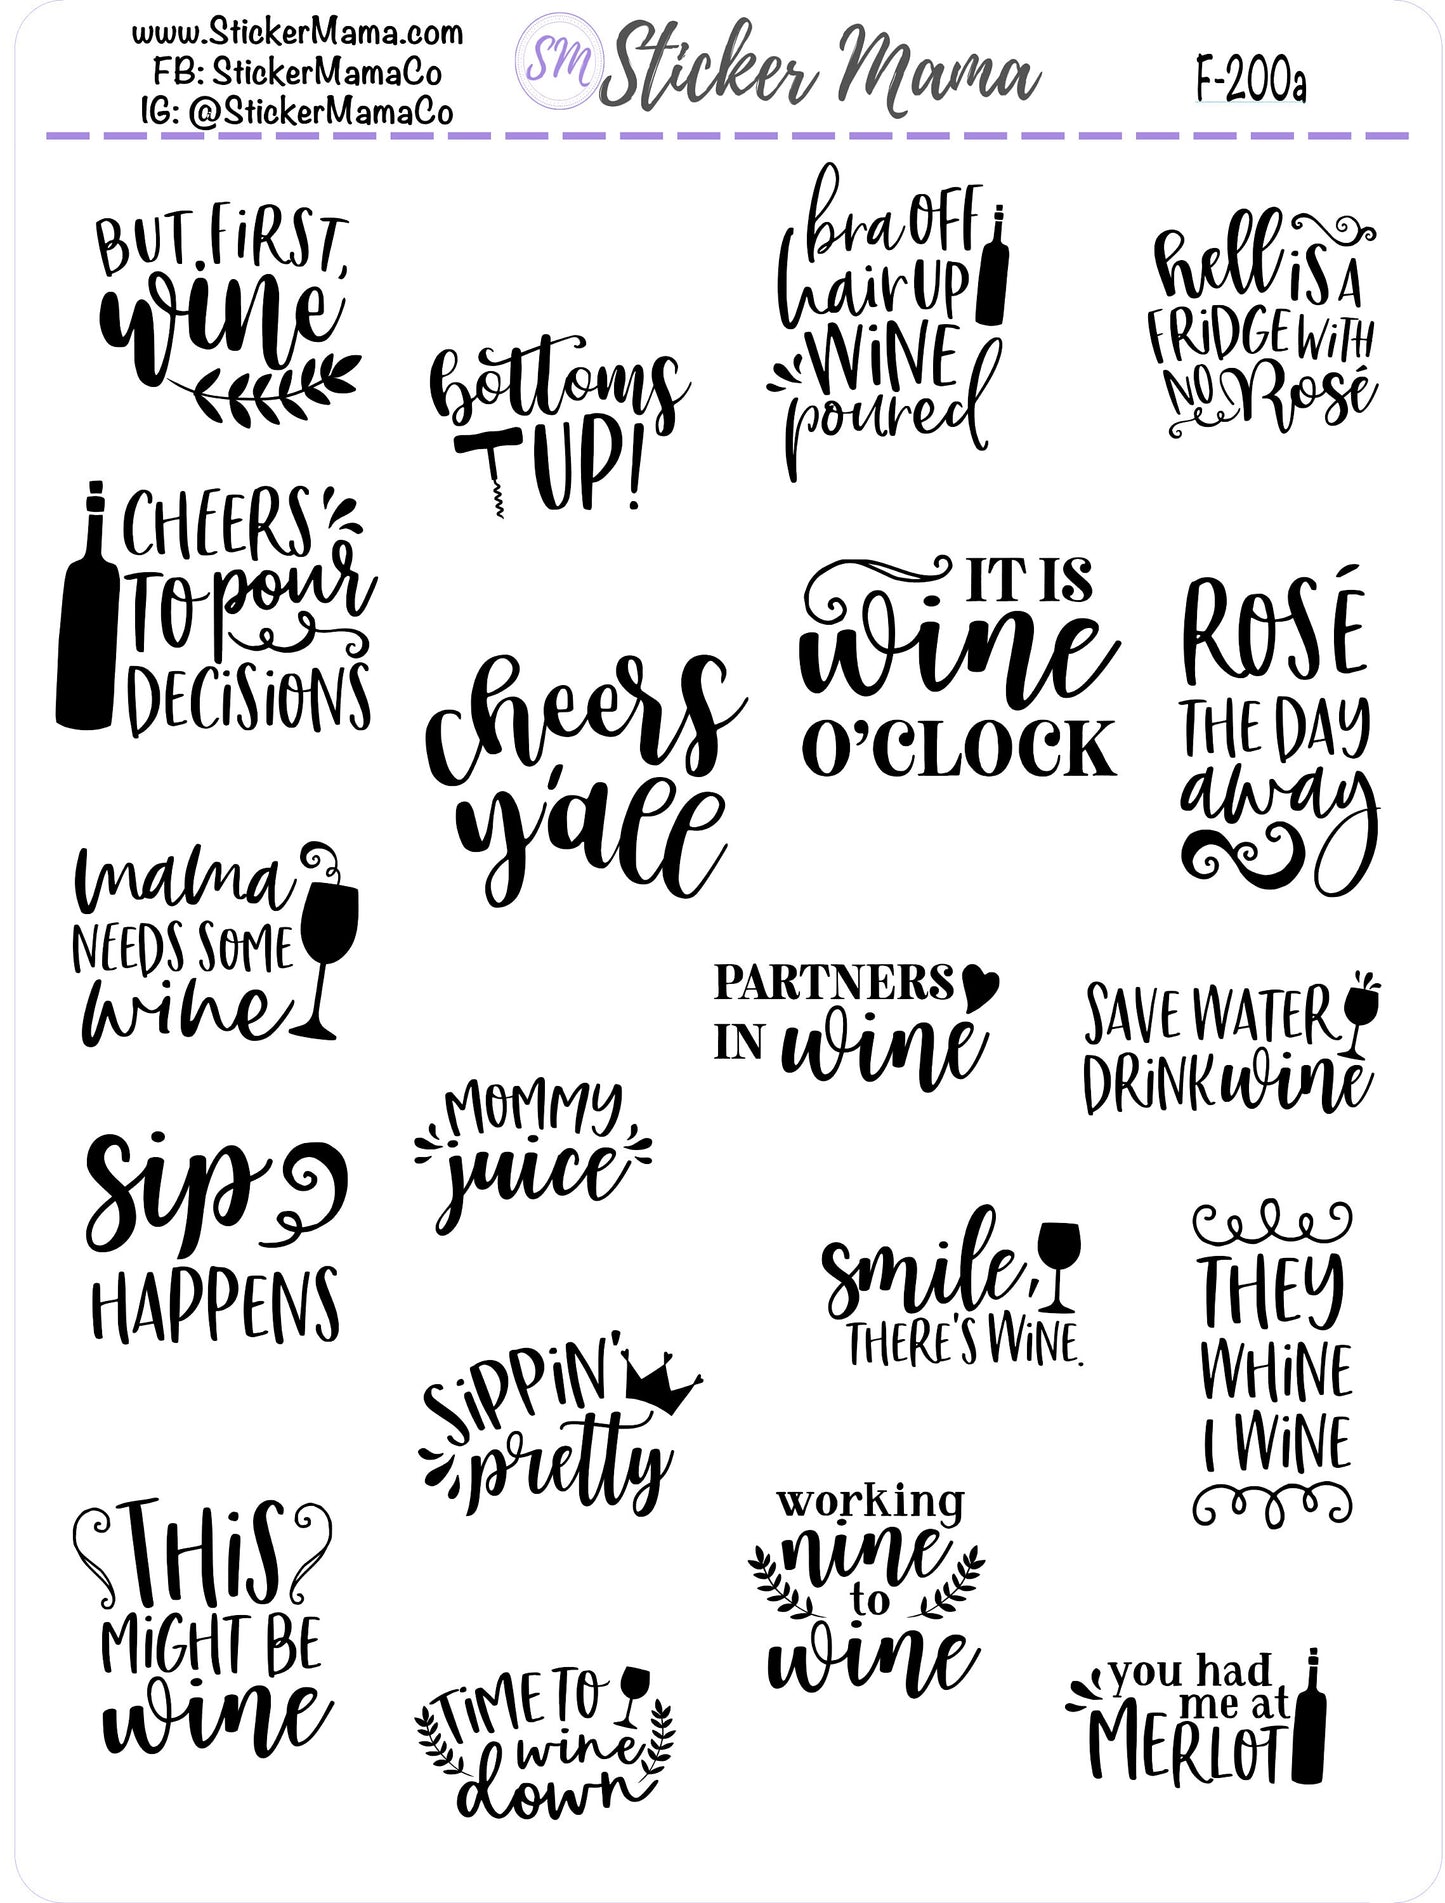 www.StickerMama.com
FB: StickerMamaCo
IG: @StickerMamaCo
SM
Sticker Mama
F-200a
BUT FiRST,
wine
CHEERS
TO pour
DECiSiONS
mama
NEEDS SOME
wine
sip
HAPPENS
THiS
MiGHT BE
wine
bottoms
UP!
cheers
y'all
MOMMY
juice
SiPPiN'
pretty
TiME TO
wine
down
bra OFF
hair UP
WiNE
poured
IT IS
wine
O'CLOCK
PARTNERS
IN wine
smile,
THERE'S WiNE.
working
nine
to
wine
hell iS A
FRiDGE WiTH
NO Rosé
ROSÉ
THE DAY
away
SAVE WATER
DRiNK wine
THEY
WHiNE
I WiNE
you had
me at
MERLOT